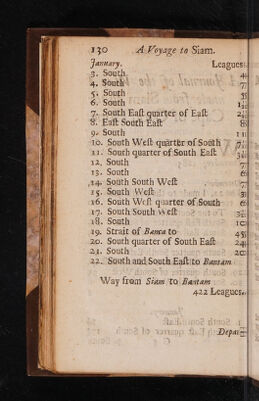 130 A Voyage to Siam.
January. Leagues
3. South
4. South
5. South
6. South
7. South East quarter of East
8. East South East
9. South
10. South West quarter of South
11. South quarter of South East
12. South
13. South
14. South South West
15. South West
16. South West quarter of South
17. South South West
18. South
19. Strait of Banca to
20. South quarter of South East
21. South
22. South and South East to Bantam
Way from Siam to Bantam
422 Leagues.